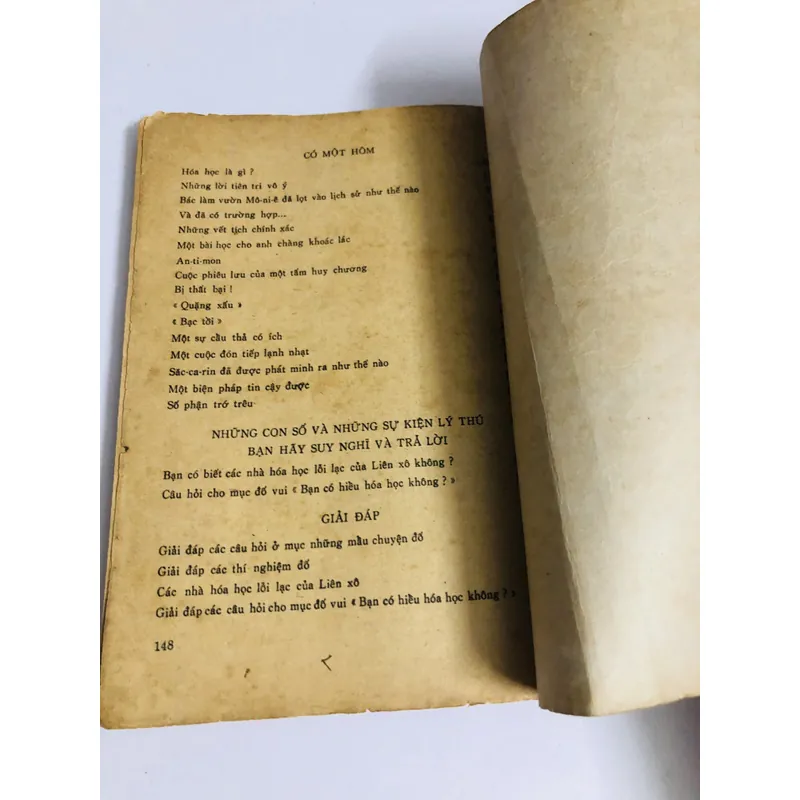 CÓ MỘT HÔM
Hóa học là gì ?
Những lời tiên tri vô ý
Bác làm vườn Mô-ni-ê đã lọt vào lịch sử như thế nào
Và đã có trường hợp...
Những vết tịch chính xác
Một bài học cho anh chàng khoác lác
An-ti-mon
Cuộc phiêu lưu của một tấm huy chương
Bị thất bại !
« Quặng xấu »
« Bạc tồi »
Một sự cầu thả có ích
Một cuộc đón tiếp lạnh nhạt
Săc-ca-rin đã được phát minh ra như thế nào
Một biện pháp tin cậy được
Số phận trớ trêu
NHỮNG CON SỐ VÀ NHỮNG SỰ KIỆN LÝ THÚ
BẠN HÃY SUY NGHĨ VÀ TRẢ LỜI
Bạn có biết các nhà hóa học lỗi lạc của Liên xô không ?
Câu hỏi cho mục đố vui « Bạn có hiểu hóa học không ? »
GIẢI ĐÁP
Giải đáp các câu hỏi ở mục những mẩu chuyện đố
Giải đáp các thí nghiệm đố
Các nhà hóa học lỗi lạc của Liên xô
Giải đáp các câu hỏi cho mục đố vui « Bạn có hiểu hóa học không ? »
148